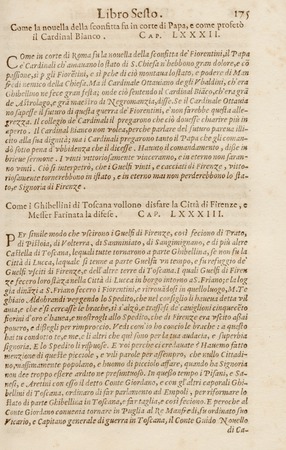 Libro Sesto. 175
Come la nouella della sconfitta fu in corte di Papa, e come profetò
il Cardinal Bianco. CAP. LXXXII.
COme in corte di Roma fu la nouella della sconfitta de' Fiorentini, il Papa
e Cardinali ch'amauano lo stato di S. Chiesa n'hebbono gran dolore, e cō
passione, sì pe gli Fiorētini, e sì pche di ciò montaua lo stato, e podere di Man
fredi nemico della Chiesa. Ma il Cardinale Ottauiano de gli Vbaldini, ch'era
Ghibellino ne fece gran festa; onde ciò sentendo il Cardinal Biāco, ch'era grā
de Astrolago, e grā maestro di Negromantia, disse. Se il Cardinale Ottauia
no sapesse il futuro di questa guerra de' Fiorentini, e' non farebbe questa alle-
grezza. Il collegio de' Cardinali il pregarono che ciò douesse chiarire piu in
aperto. Il Cardinal bianco non volea, perche parlare del futuro parea illi-
cito alla sua dignità; ma i Cardinali pregarono tanto il Papa che gli coman-
dò sotto pena d'vbbidenza che il dicesse. Hauuto il comandamento, disse in
brieue sermone. I vinti vittoriosamente vinceranno, e in eterno non saran-
no vinti. Ciò si interpetrò, che i Guelfi vinti, e cacciati di Firenze, vitto-
riosamente tornerebbono in istato, e in eterno mai non perderebbono lo sta-
to, e Signoria di Firenze.
Come i Ghibellini di Toscana vollono disfare la Città di Firenze, e
Messer Farinata la difese. CAP. LXXXIII.
PEr simile modo che vscirono i Guelfi di Firenze, così feciono di Prato,
di Pistoia, di Volterra, di Sanminiato, di Sangimignano, e di più altre
Castella di Toscana, lequali tutte tornarono a parte Ghibellina, se non fu la
Città di Lucca, laquale si tenne a parte Guelfa vn tempo, e fu refuggio de'
Guelfi vsciti di Firenze, e dell'altre terre di Toscana. I quali Guelfi di Firen
ze fecero loro stāza nella Città di Lucca in borgo intorno a S. Friano; e la log
gia dināzi a S. Friano fecero i Fiorentini, e ritrouādosi in quello luogo, M. Te
ghiaio Aldobrandi veggendo lo Spedito, che nel consiglio li haueua detta vil
ania, e che si cercasse le brache, si alzò, e trassesi de' caniglioni cinquecēto
fiorini d'oro c'hauea, e mostrogli allo Spedito, che di Firenze era vscito assai
pouero, e dissegli per rimproccio. Vedi com'io ho concie le brache: a questo
hai tu condotto te, e me, e li altri che quì sono per la tua audacia, e superbia
signoria. E lo Spedito li rispuose. E voi perche ci credauate? Hauemo fatta
menzione di queste picciole, e vili parole per assempro, che nullo Cittadi-
no, massimamente popolano, e huomo di picciolo affare, quando ha Signoria
non dee troppo essere ardito ne presuntuoso. In questo tempo i Pisani, e Sa-
nesi, e Aretini con esso il detto Conte Giordano, e con gli altri caporali Ghi-
bellini di Toscana, ordinaro di far parlamento ad Empoli, per riformare lo
stato di parte Ghibellina in Toscana, e far taglia, e così feciono. E perochè al
Conte Giordano conuenia tornare in Puglia al Re Manfredi, fu ordinato suo
Vicario, e Capitano generale di guerra in Toscana, il Conte Guido Nouello
di Ca-